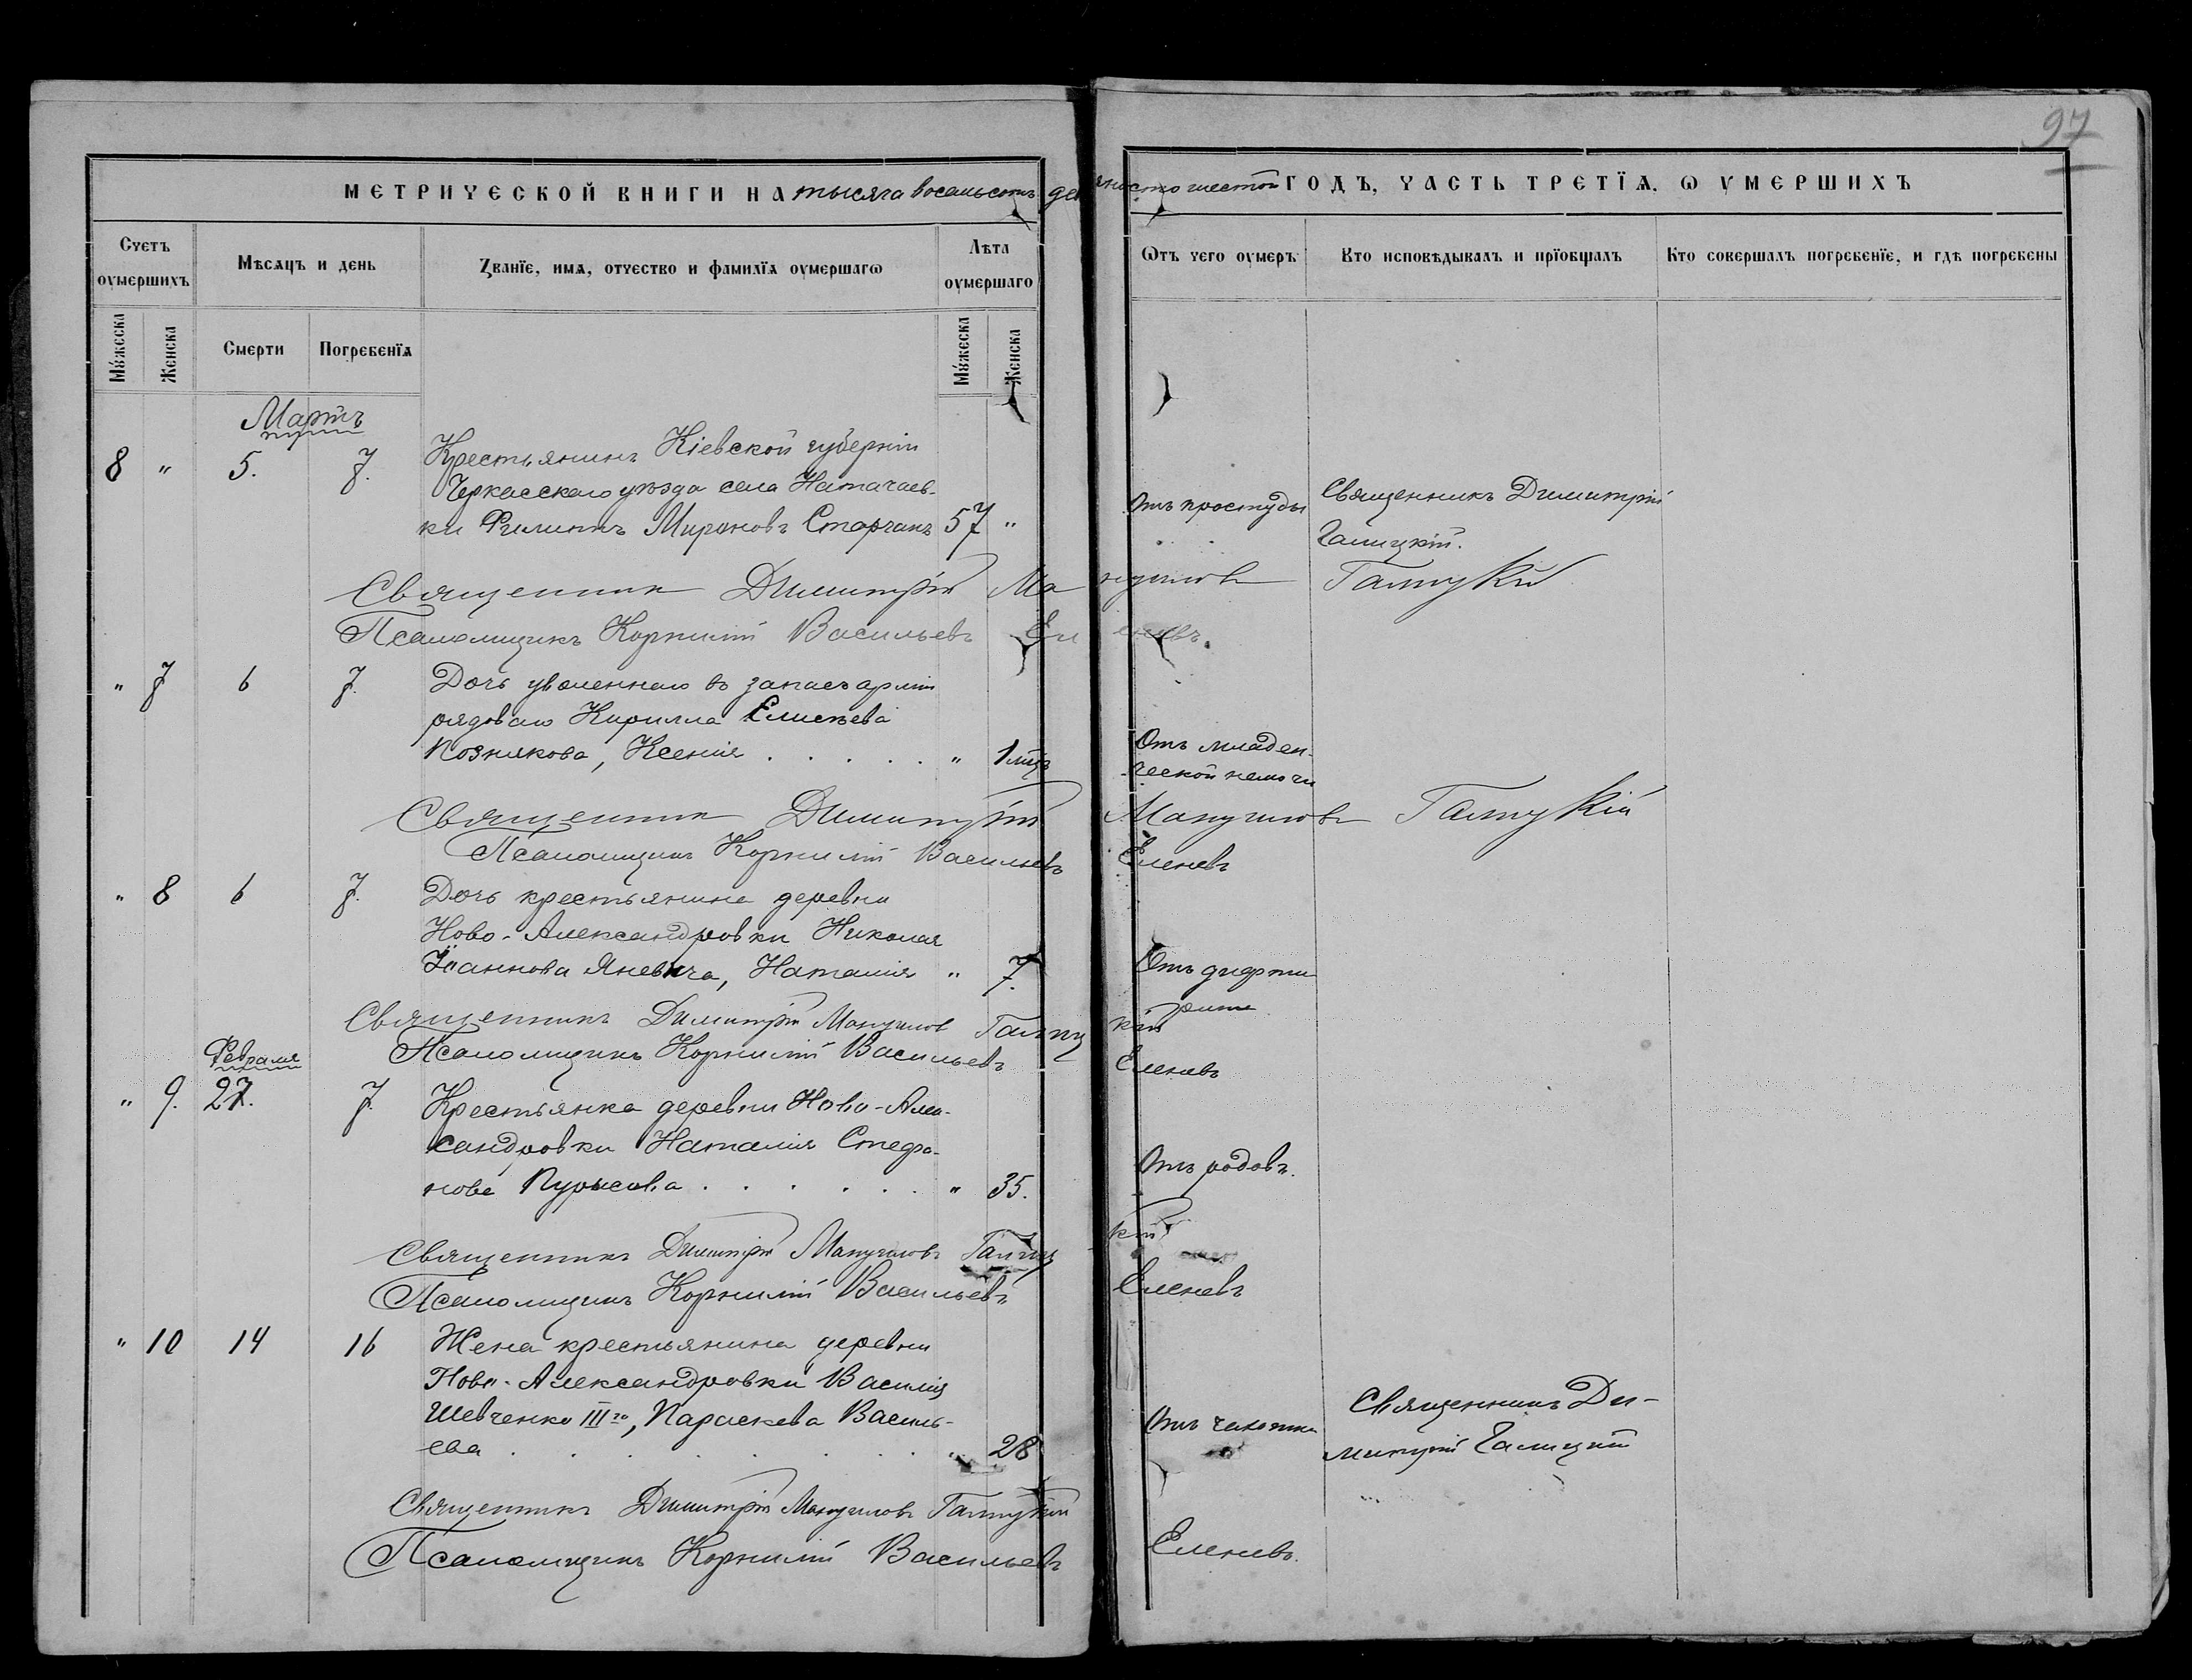 97
МЕТРИЧЕСКОЙ КНИГИ НА тысяча восемьсотъ девяносто шестой ГОДЪ, ЧАСТЬ ТРЕТІѦ, Ѡ УМЕРШИХЪ
Счетъ оумершихъ
Мѣсяцъ и день
Званїе, имѧ, отчество и фамилїѧ оумершагѡ
Лѣта оумершаго
Ѿтъ чего оумеръ
Кто исповѣдывалъ и прїобщалъ
Кто совершалъ погребенїе, и гдѣ погребены
Мꙋжеска
Женска
Смерти
Погребенїѧ
Мꙋжеска
Женска
Мартъ
8 " 5. 7. Крестьянинъ Кіевской губерніи
Черкасскаго уѣзда села
ки Филиппъ Мироновъ 57 "
Отъ простуды
Священникъ Димитрій
Галицкій.
Священникъ Димитрій Мануиловъ Галицкій
Псаломщикъ Корнилій Васильевъ Еленевъ.
" 7 6 7. Дочь уволеннаго въ запасъ арміи
рядоваго Кирилла Елисѣева
Познякова, Ксенія . . . . . " 1 мцъ
Отъ младен-
ческой немочи
Священникъ Димитрій Мануиловъ Галицкій
Псаломщикъ Корнилій Васильевъ Еленевъ
" 8 6 7. Дочь крестьянина деревни
Ново-Александровки Николая
Іоаннова Яневича, Наталія " 7.
Отъ дифте
рита
Священникъ Димитрій Мануилов Галицкій
Псаломщикъ Корнилій Васильевъ Еленевъ
Февраля
" 9. 27. 7. Крестьянка деревни Ново-Алек-
сандровки Наталія Стефа-
нова . . . . . . " 35.
Отъ родовъ.
Священникъ Димитрій Мануиловъ Галицкій
Псаломщикъ Корнилій Васильевъ Еленевъ
" 10 14 16 Жена крестьянина деревни
Ново-Александровки Василія
Шевченко III го, Параскева Василь-
ева . . . . . . . " 28
Отъ чахотки
Священникъ Ди-
митрій Галицкій
Священникъ Димитрій Мануиловъ Галицкій
Псаломщикъ Корнилій Васильевъ Еленевъ.